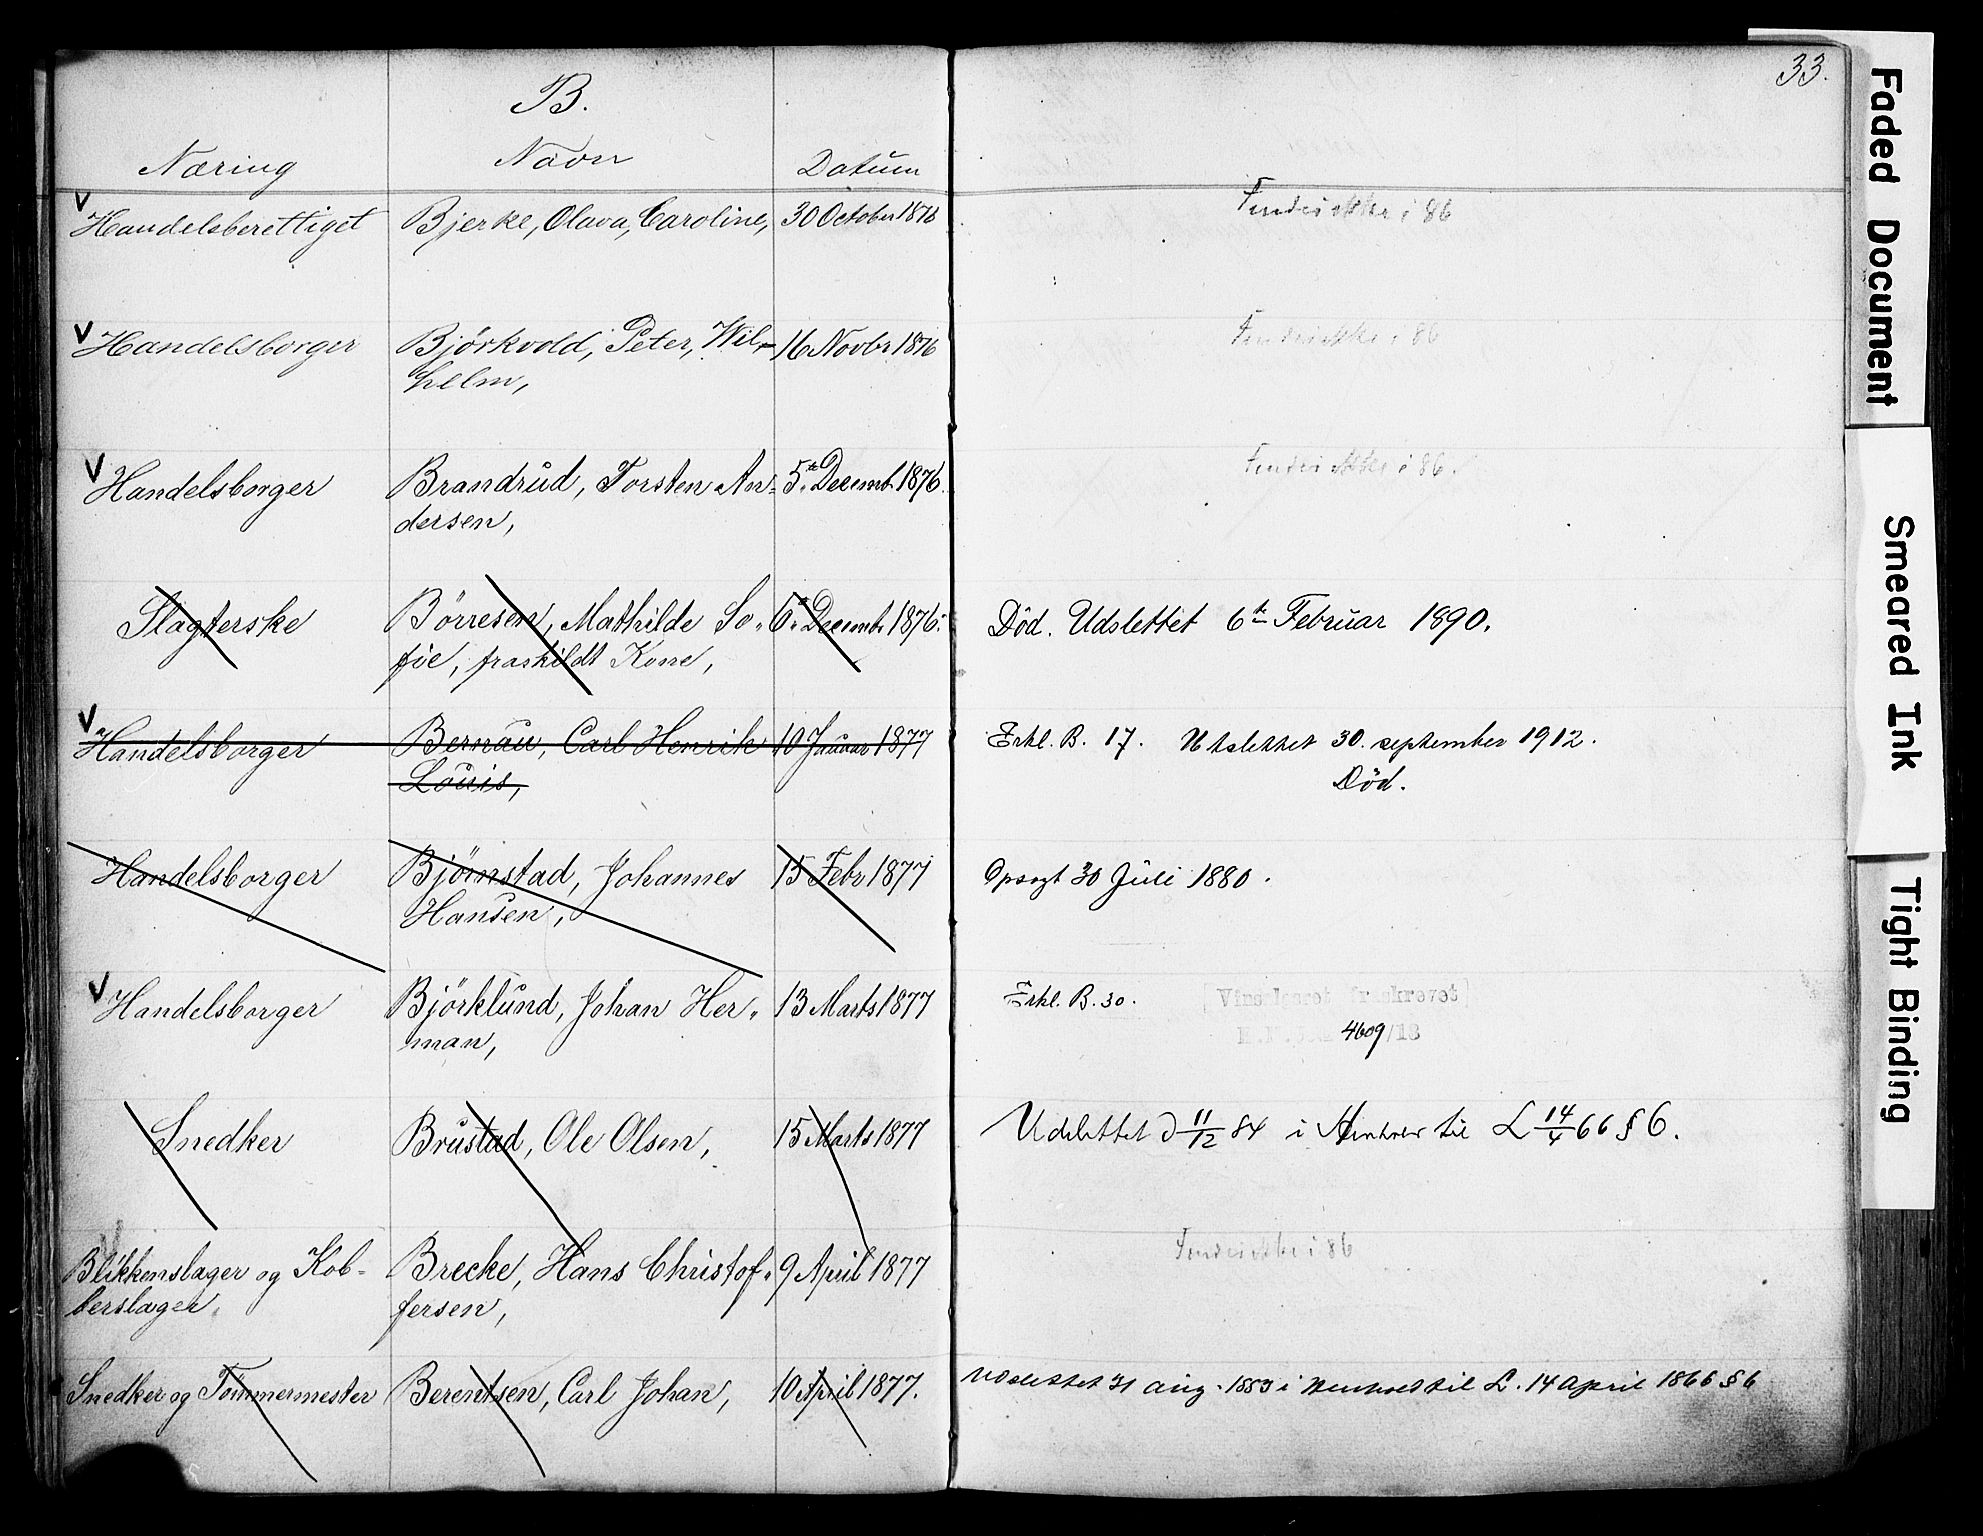 B.
33.
Næring Navn Datum
V Handelsberettiget Bjerke, Olava, Caroline, 30 October 1876 Findes ikke i 86
V Handelsborger Björkvold, Peter, Wil- 16 Novbr 1876 Findes ikke i 86
helm,
V Handelsborger Brandrud, Torsten An- 5te Decemb. 1876. Findes ikke i 86.
dersen,
Slagterske Börresen, Mathilde So- 6te Decembr 1876. Död. Udslettet 6te Februar 1890.
fie, fraskildt Kone,
V Handelsborger Bernau, Carl Henrik 10 Januar 1877 Erkl. B. 17. Utslettet 30. september 1912.
Louis, Död.
Handelsborger Björnstad, Johannes 15 Febr 1877 Opsagt 30 Juli 1880.
Hansen,
V Handelsborger Björklund, Johan Her- 13 Marts 1877 Erkl. B. 30. [Vinsalgsret fraskrevet]
man, 4609/18
Snedker Brustad, Ole Olsen, 15 Marts 1877 Udslettet d 11/12 84 i Henhold til L 14/4 66 § 6.
Blikkenslager og Kob- Brecke, Hans Christof- 9 April 1877 Findes ikke i 86
berslager. fersen,
Snedker og Tömmermester Berentsen, Carl Johan, 10 April 1877. Udslettet 31 aug. 1883 i Henhold til L. 14 april 1866 § 6
Faded Document
Smeared Ink
Tight Binding